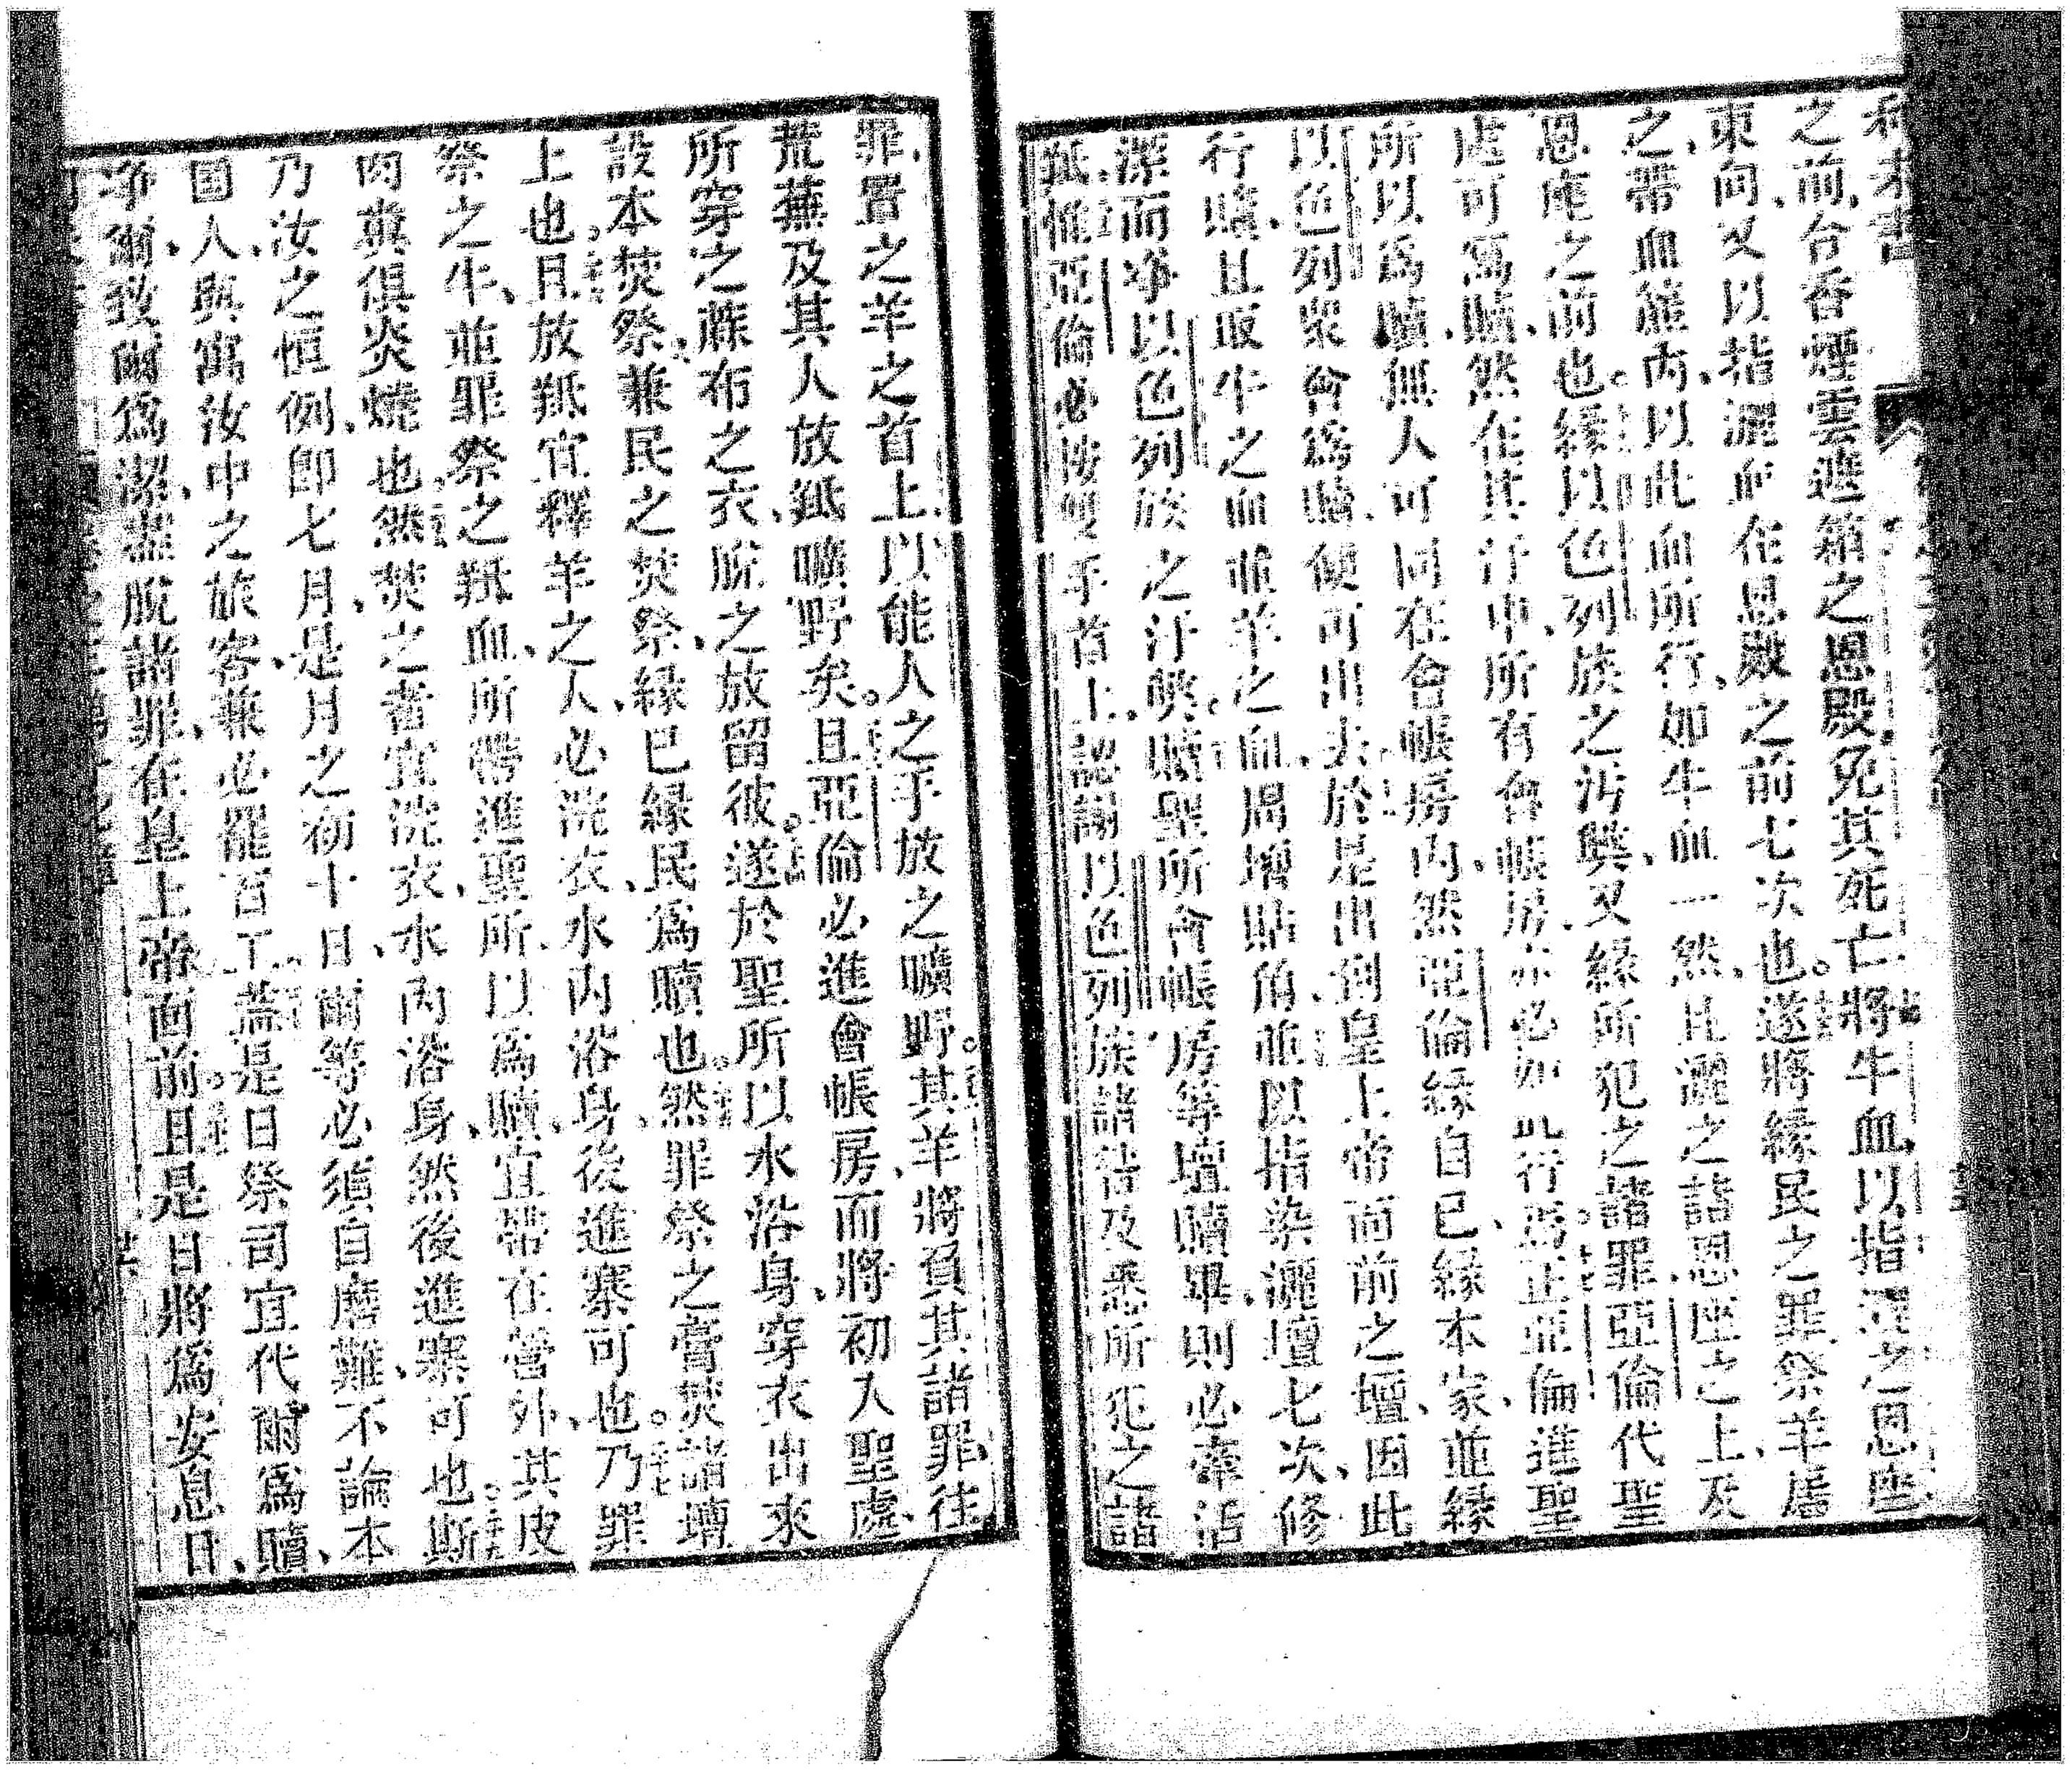 之前台香煙雲遮箱之恩殿免其死亡將牛血以指洒之恩座
東向又以指灑血在恩殿之前七次也遂將緣民之罪祭羊
之帶血簾內以此血所行如牛血一然且灑之詣恩座之上及
恩座之前也緣以色列族之汚獘又緣所犯之諸罪亞倫代聖
處可爲贖然在其汙中所有會帳房亦必如此行焉正亞倫進聖
所以爲贖無人可同在會帳房內然亞倫緣自己緣本家並緣
以色列衆會爲贖便可出去於是出到皇上帝面前之壇因此
行贖且取牛之血並羊之血周壇貼角並以指染灑壇七次修
潔而凈以色列族之汙獘贖聖所會帳房等壇贖畢則必牽活
羝惟亞倫必按雙手首上認謝以色列族諸咎及悉所犯之諸
罪置之羊之首上以能人之手放之曠野其羊將負其諸罪往
荒蕪及其人放羝曠野矣且亞倫必進會帳房而將初入聖處
所穿之蔴布之衣脫之放留彼遂於聖所以水浴身穿衣出來
設本焚祭兼民之焚祭緣已緣民爲贖也然罪祭之膏焚諸壇
上也且放羝宜釋羊之人必洗衣水內浴身後進寨可也乃罪
祭之牛並罪祭之羝血所帶進聖所以爲贖宜帶在營外其皮
肉糞俱炎燒也然焚之者宜洗衣水內浴身然後進寨可也斯
乃汝之恒例卽七月是月之初十日爾等必須自磨難不論本
国人與寓汝中之旅客兼必罷百工葢是日祭司宜代爾爲贖
凈爾致爾爲潔盡脫諸罪在皇上帝面前且是日將爲安息日